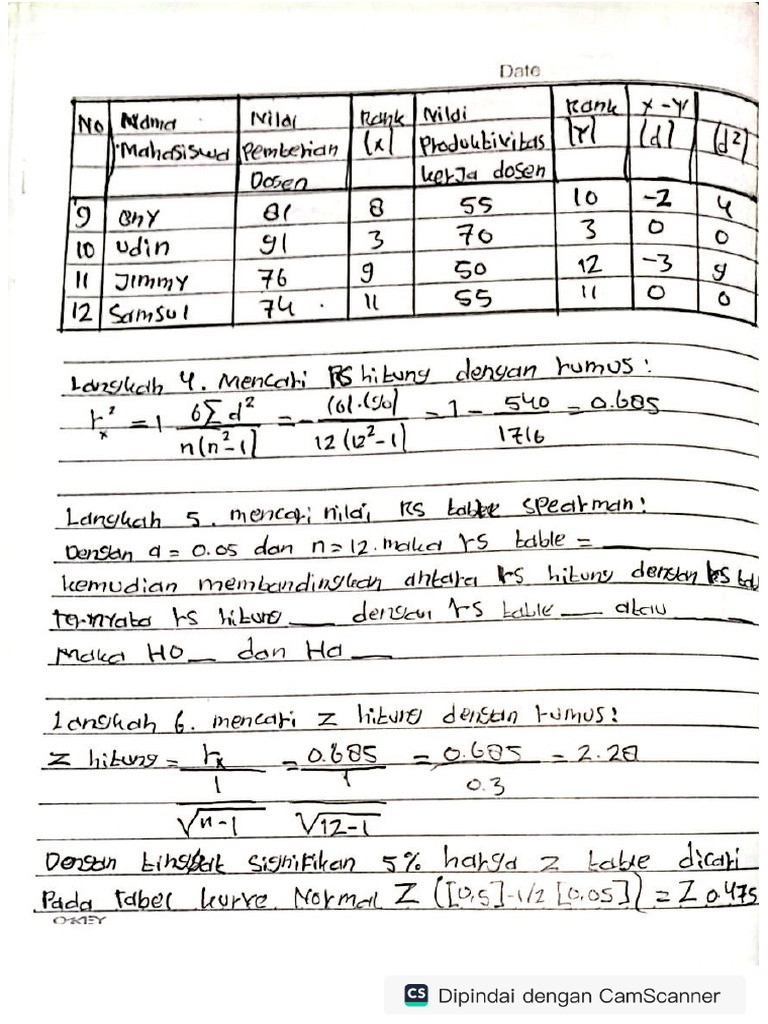 Date
No Nama Mahasiswa Nilai Pemberian Dosen Rank (x) Nilai Produktivitas kerja dosen Rank (Y) x-y (d) (d²)
9 Ony 81 8 55 10 -2 4
10 Udin 91 3 70 3 0 0
11 Jimmy 76 9 50 12 -3 9
12 Samsul 74 11 55 11 0 0
Langkah 4. Mencari RS hitung dengan rumus:
r²ₓ = 1 6∑d² / n(n²-1) = - (6).(90) / 12(12²-1) = 1 - 540 / 1716 = 0.685
Langkah 5. mencari nilai RS tabel spearman:
Dengan a = 0.05 dan n = 12. maka rs table = ___
kemudian membandingkan antara rs hitung dengan rs
ternyata rs hitung ___ dengan rs table ___ atau ___
Maka HO ___ dan Ha ___
Langkah 6. mencari Z hitung dengan rumus:
Z hitung = rₓ / 1/√n-1 = 0.685 / 1/√12-1 = 0.685 / 0.3 = 2.28
Dengan tingkat signifikan 5% harga Z table dicari
Pada tabel kurve Normal Z ([0,5]-1/2 [0.05]) = Z 0.475
OKEY
CS Dipindai dengan CamScanner